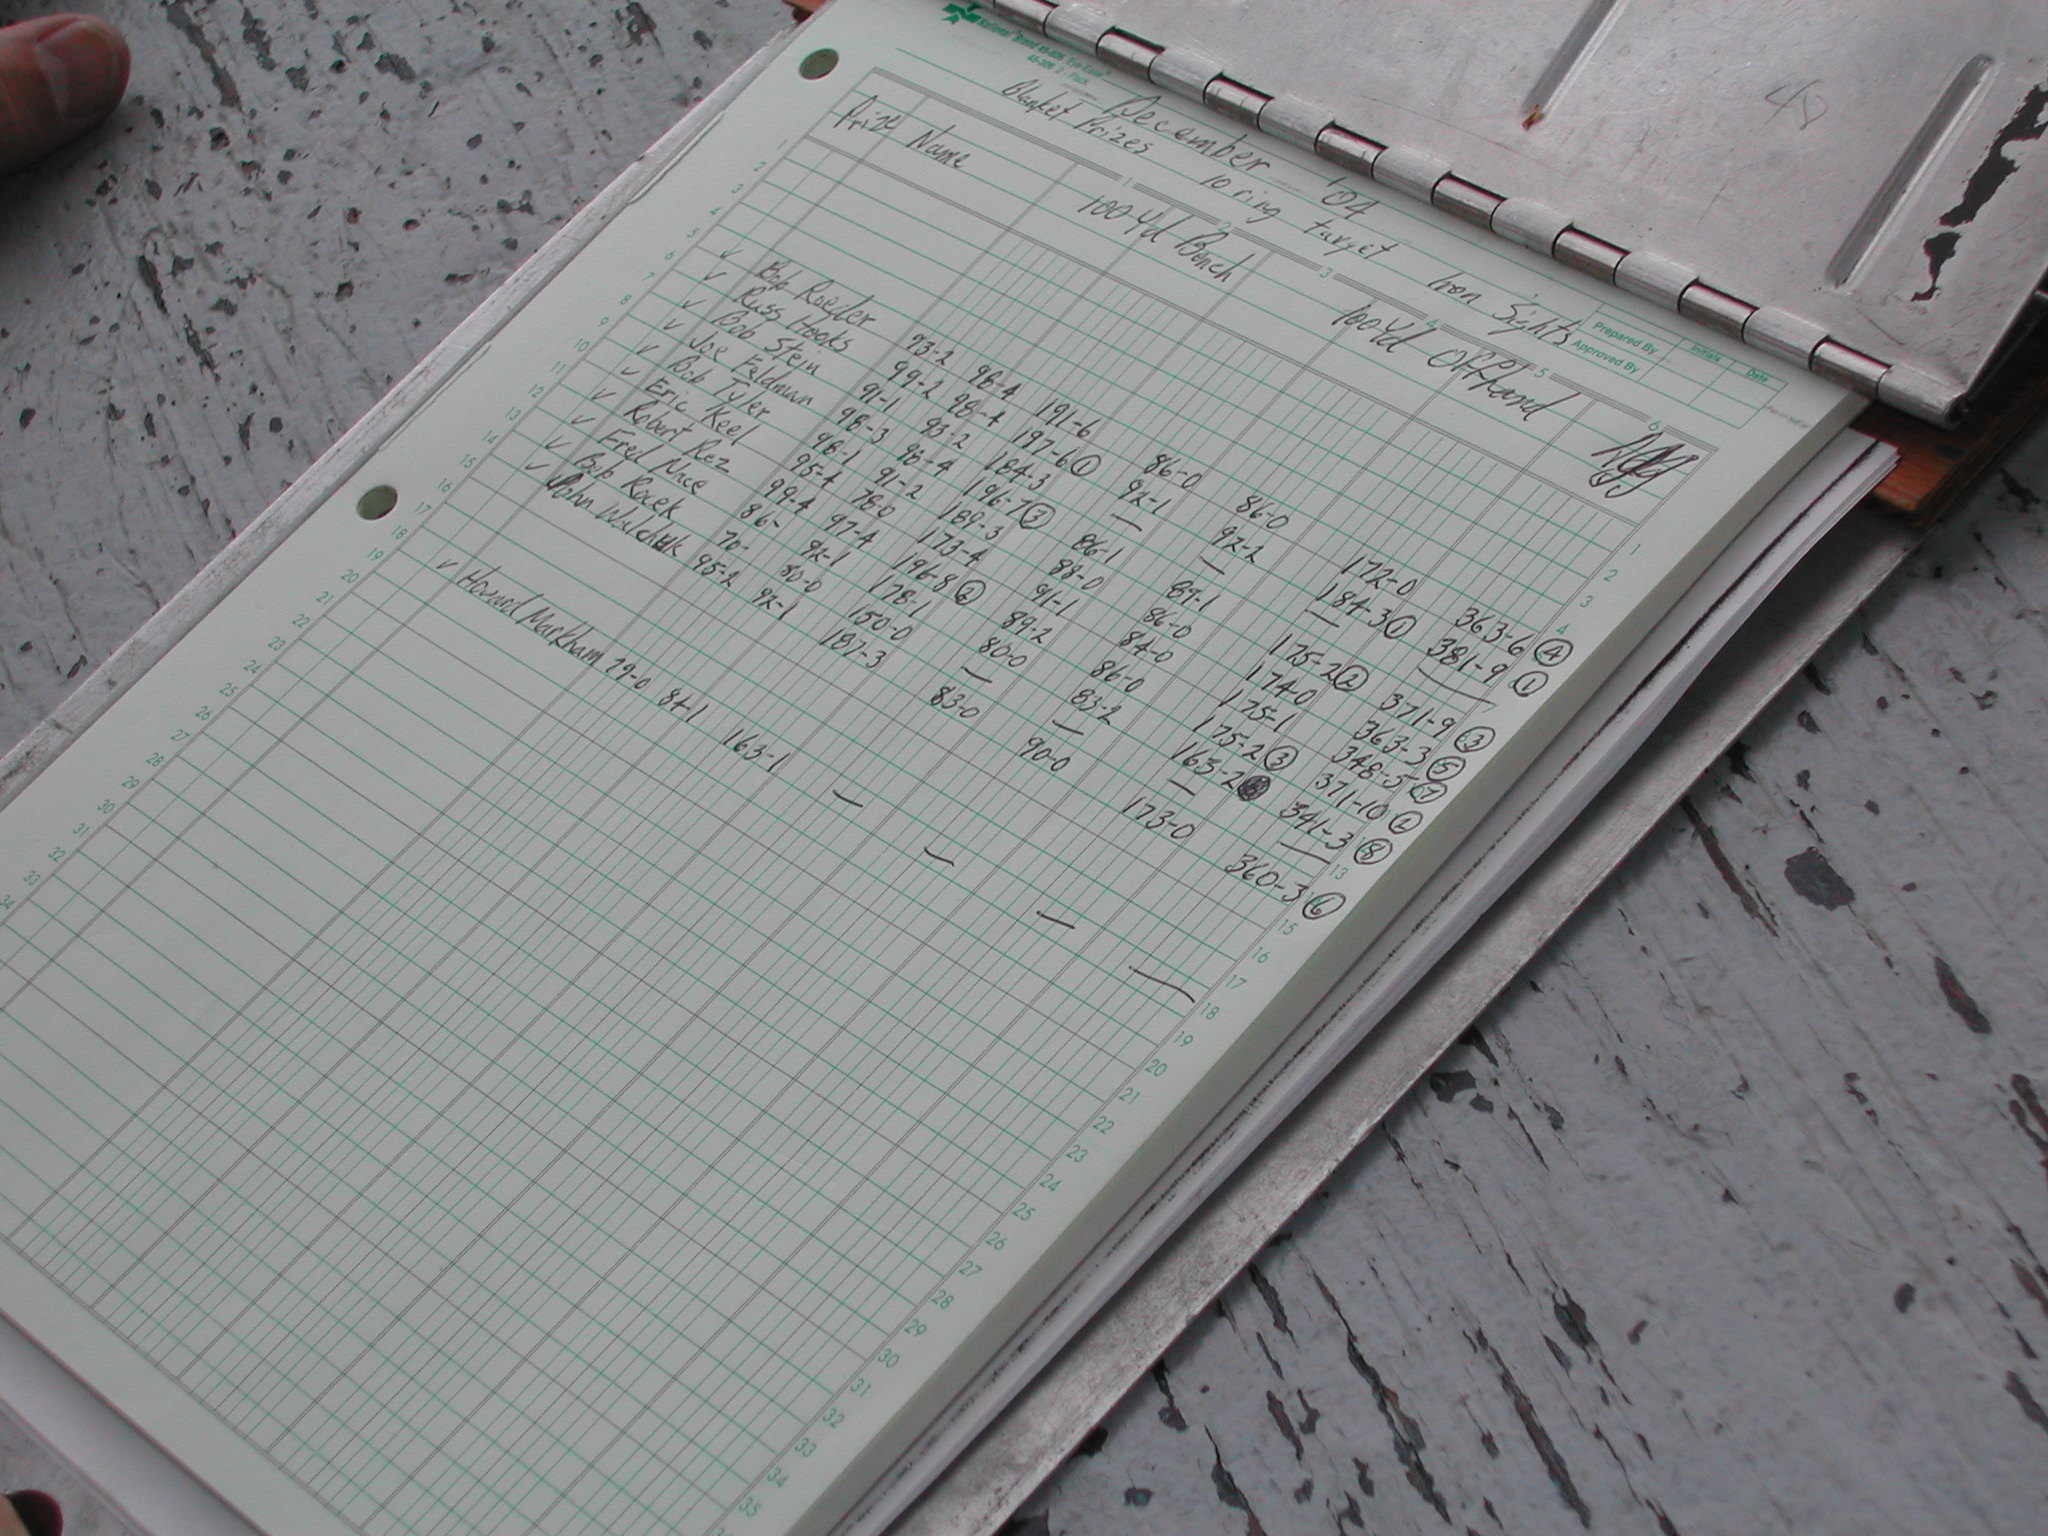 National Brand 45-606 Eye-Ease
45-306 2 - Pack
December '04
Blanket Prizes 10 ring target Iron Sights
Prepared By Initials Date
Approved By
1 2 3 4 5 6
Prize Name 100 Yd Bench 100 Yd Offhand Agg
✓ Bob Roeder 93-2 98-4 191-6 86-0 86-0 172-0 363-6 ④
✓ Russ Hooks 99-2 98-4 197-6 ① 92-1 92-2 184-3 ① 381-9 ①
✓ Bob Stein 91-1 93-2 184-3 — — — —
✓ Joe Feldman 98-3 98-4 196-7 ③ 86-1 89-1 175-2 ② 371-9 ③
✓ Bob Tyler 98-1 91-2 189-3 88-0 86-0 174-0 363-3 ⑤
✓ Eric Keel 95-4 78-0 173-4 91-1 84-0 175-1 348-5 ⑦
✓ Robert Rez 99-4 97-4 196-8 ② 89-2 86-0 175-2 ③ 371-10 ②
✓ Fred 86- 92-1 178-1 80-0 83-2 163-2 341-3 ⑧
✓ Bob Rocek 70- 80-0 150-0 — — — —
✓ John Walchuk 95-2 92-1 187-3 83-0 90-0 173-0 360-3 ⑥
✓ Howard Markham 79-0 84-1 163-1 — — — —